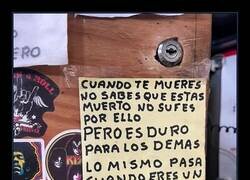 ERO
CUANDO TE MUERES
NO SABES QUE ESTAS
MUERTO NO SUFES
POR ELLO
PERO ES DURO
PARA LOS DEMAS
LO MISMO PASA
CUANDO ERES UN